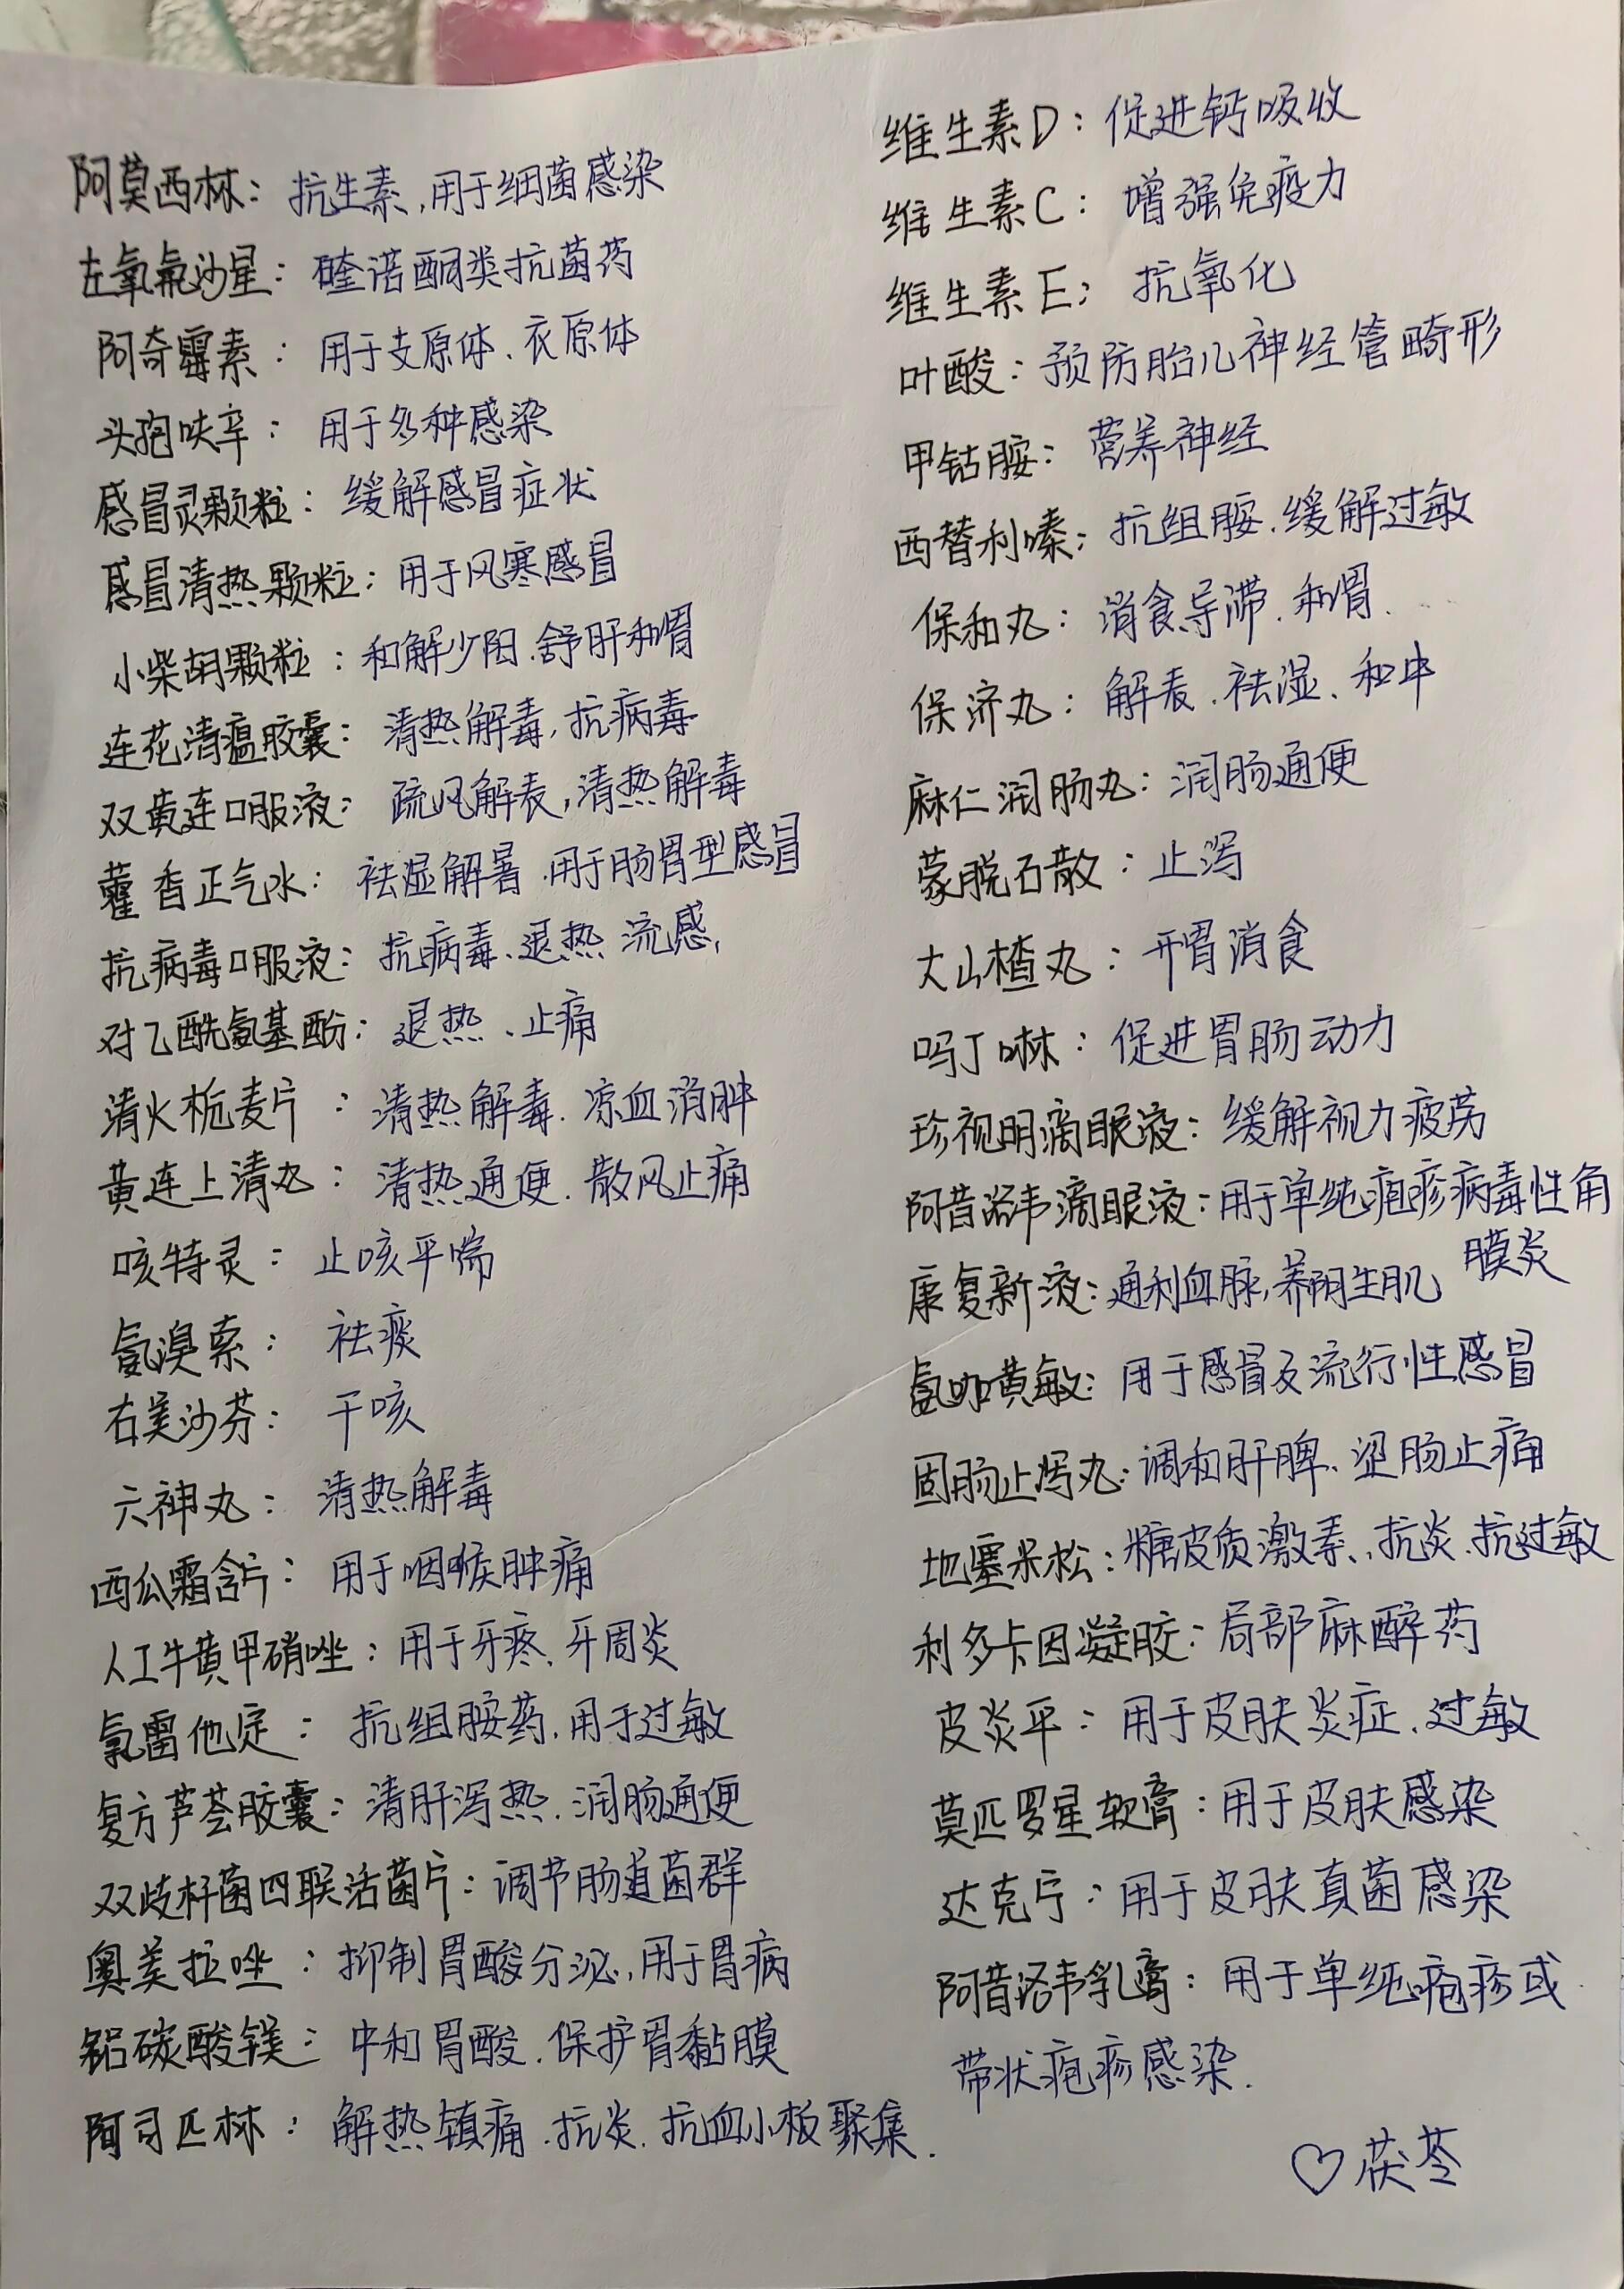 阿莫西林：抗生素，用于细菌感染
左氧氟沙星：喹诺酮类抗菌药
阿奇霉素：用于支原体、衣原体
头孢呋辛：用于多种感染
感冒灵颗粒：缓解感冒症状
感冒清热颗粒：用于风寒感冒
小柴胡颗粒：和解少阳、舒肝和胃
连花清瘟胶囊：清热解毒，抗病毒
双黄连口服液：疏风解表，清热解毒
藿香正气水：祛湿解暑、用于肠胃型感冒
抗病毒口服液：抗病毒、退热 流感，
对乙酰氨基酚：退热、止痛
清火栀麦片：清热解毒、凉血消肿
黄连上清丸：清热通便、散风止痛
咳特灵：止咳平喘
氨溴索：祛痰
右美沙芬：干咳
六神丸：清热解毒
西瓜霜含片：用于咽喉肿痛
人工牛黄甲硝唑：用于牙疼、牙周炎
氯雷他定：抗组胺药，用于过敏
复方芦荟胶囊：清肝泻热、润肠通便
双歧杆菌四联活菌片：调节肠道菌群
奥美拉唑：抑制胃酸分泌，用于胃病
铝碳酸镁：中和胃酸、保护胃黏膜
阿司匹林：解热镇痛、抗炎、抗血小板聚集．
维生素D：促进钙吸收
维生素C：增强免疫力
维生素E：抗氧化
叶酸：预防胎儿神经管畸形
甲钴胺：营养神经
西替利嗪：抗组胺、缓解过敏
保和丸：消食导滞、和胃．
保济丸：解表、祛湿、和中
麻仁润肠丸：润肠通便
蒙脱石散：止泻
大山楂丸：开胃消食
吗丁啉：促进胃肠动力
珍视明滴眼液：缓解视力疲劳
阿昔洛韦滴眼液：用于单纯疱疹病毒性角
膜炎
康复新液：通利血脉，养阴生肌
氨咖黄敏：用于感冒及流行性感冒
固肠止泻丸：调和肝脾、涩肠止痛
地塞米松：糖皮质激素、抗炎、抗过敏
利多卡因凝胶：局部麻醉药
皮炎平：用于皮肤炎症、过敏
莫匹罗星软膏：用于皮肤感染
达克宁：用于皮肤真菌感染
阿昔洛韦乳膏：用于单纯疱疹或
带状疱疹感染．
♡茯苓